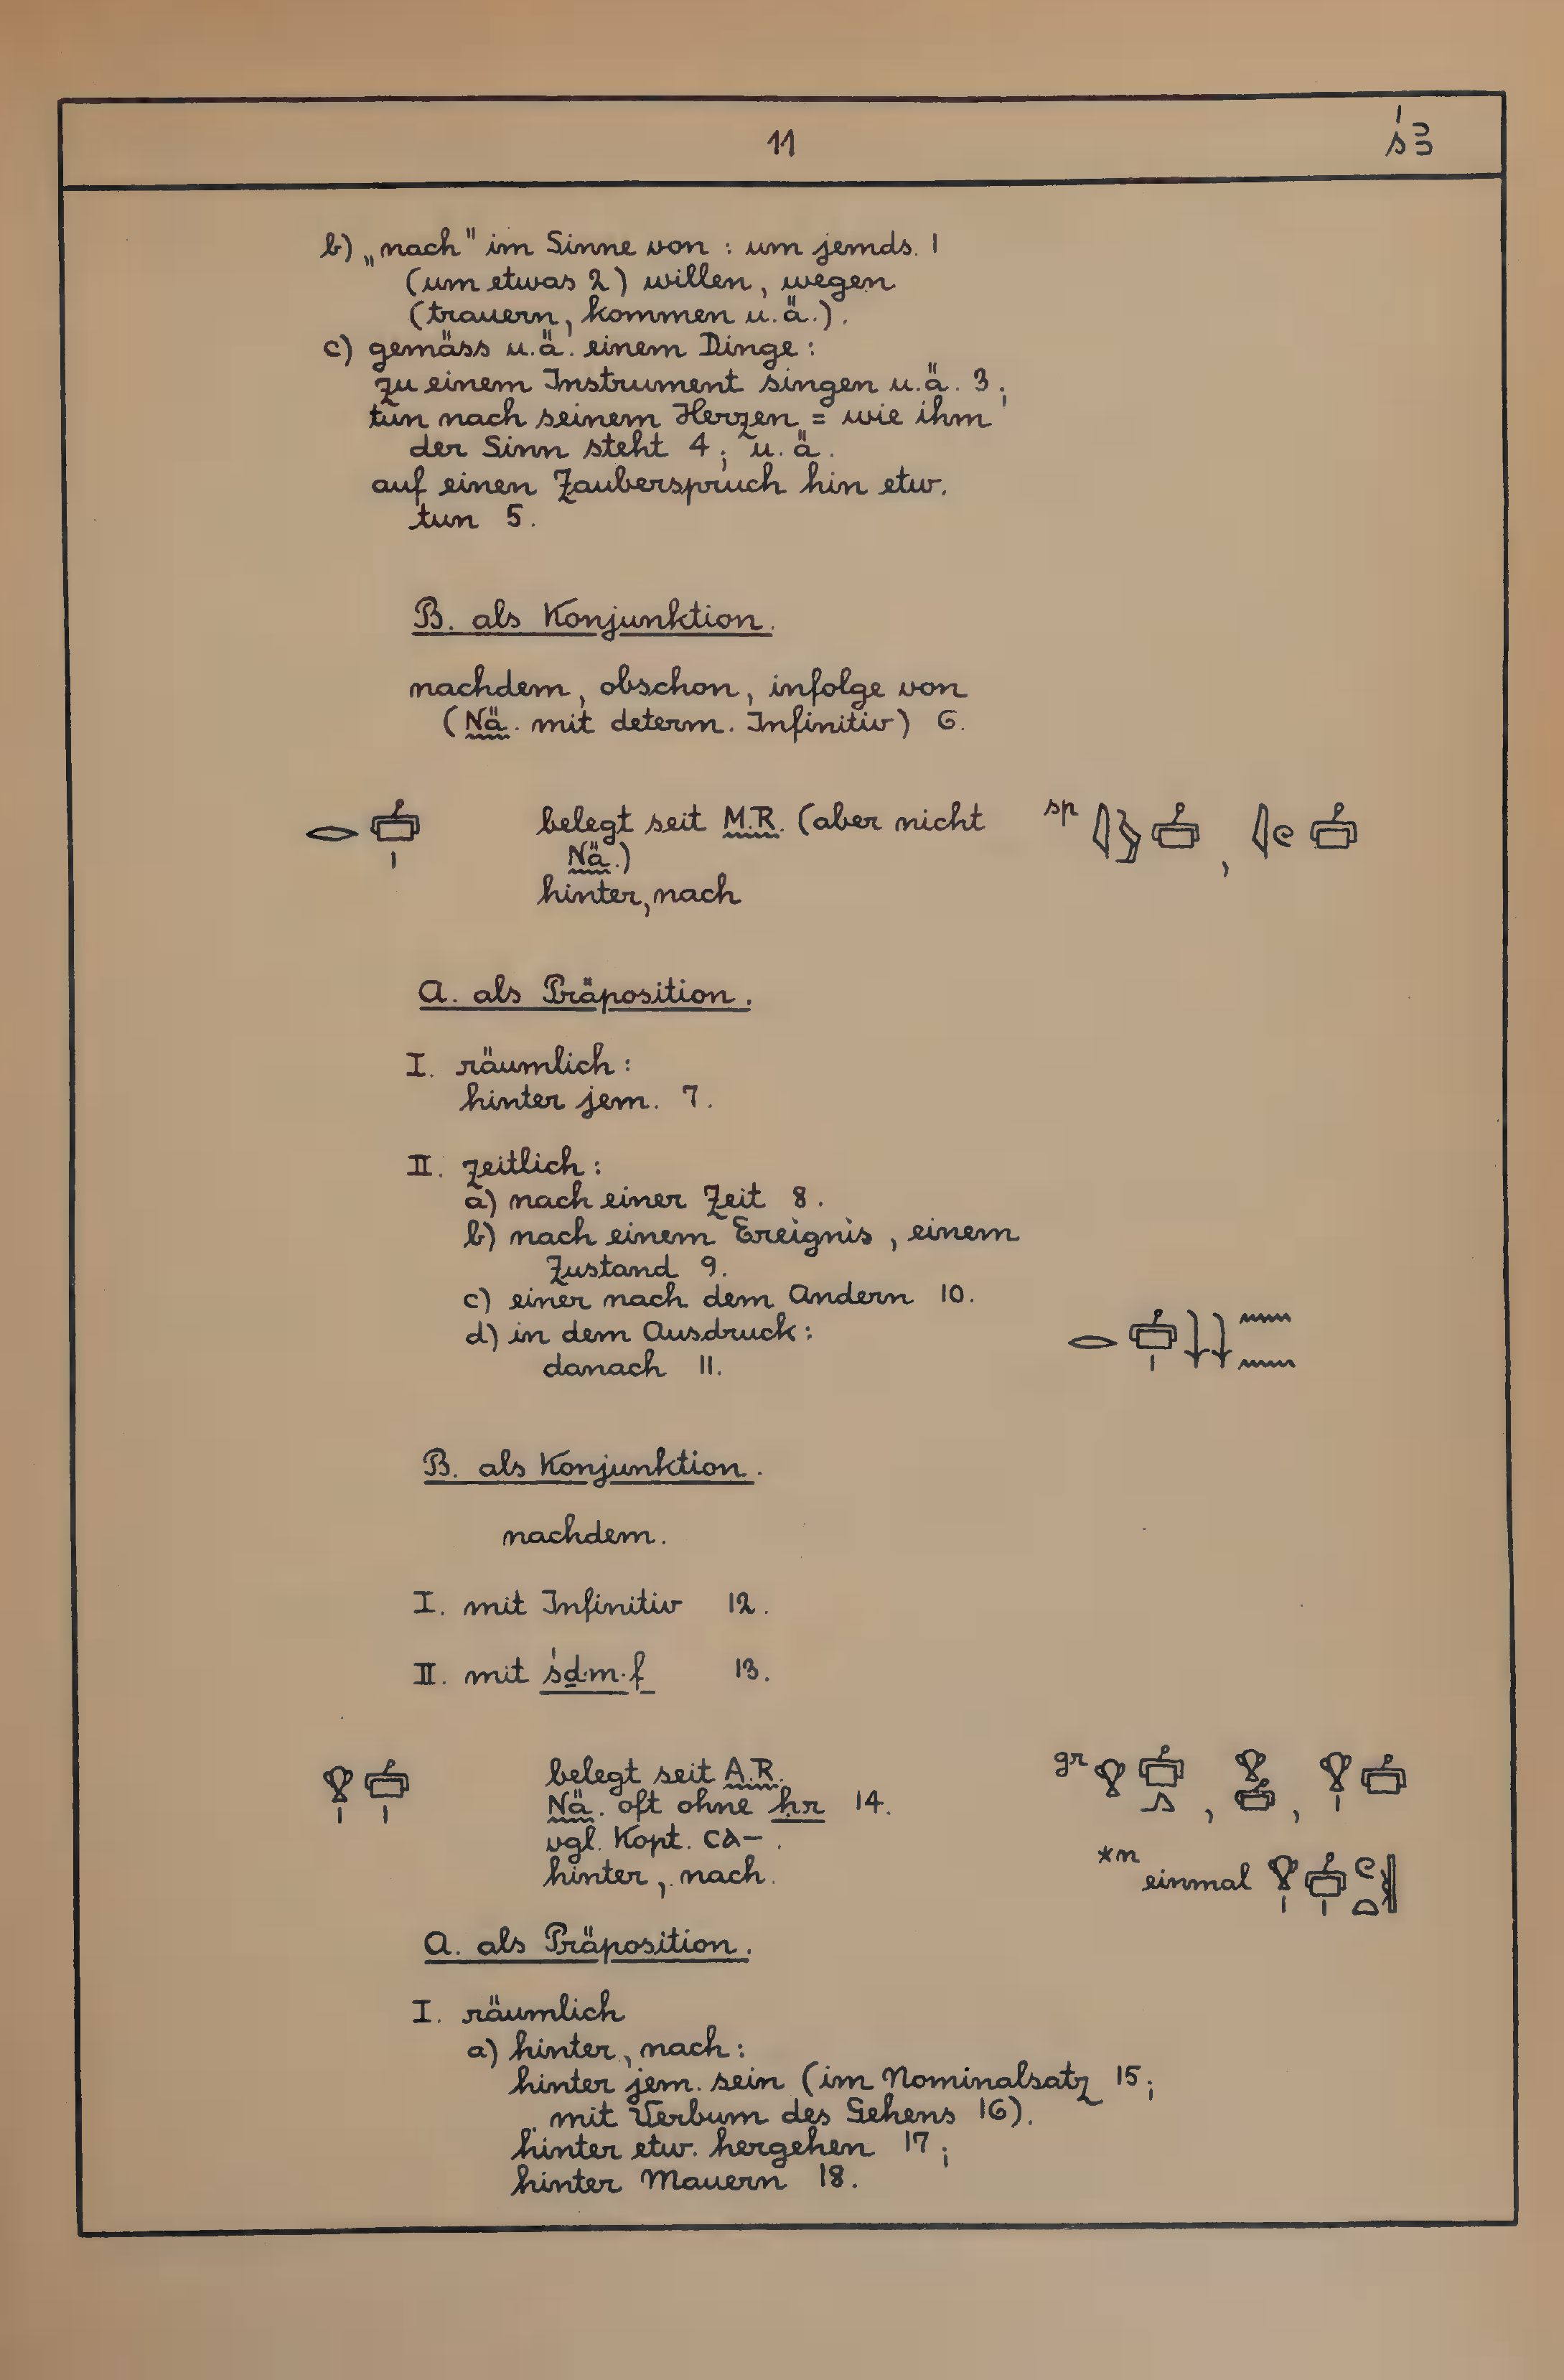 11 śꜣ
b) „nach" im Sinne von : um jemds. 1
(um etwas 2) willen, wegen
(trauern, kommen u.ä.).
c) gemäss u.ä. einem Dinge:
zu einem Instrument singen u.ä. 3;
tun nach seinem Herzen = wie ihm
der Sinn steht 4; u.ä.
auf einen Zauberspruch hin etw.
tun 5.
B. als Konjunktion.
nachdem, obschon, infolge von
(Nä. mit determ. Infinitiv) 6.
belegt seit M.R. (aber nicht sp
Nä.)
hinter, nach
A. als Präposition.
I. räumlich:
hinter jem. 7.
II. zeitlich:
a) nach einer Zeit 8.
b) nach einem Ereignis, einem
Zustand 9.
c) einer nach dem Andern 10.
d) in dem Ausdruck:
danach 11.
B. als Konjunktion.
nachdem.
I. mit Infinitiv 12.
II. mit śḏm.f 13.
belegt seit A.R. gr
Nä. oft ohne ḥr 14.
vgl. Kopt. ⲥⲁ- .
hinter, nach. *n einmal
A. als Präposition.
I. räumlich
a) hinter, nach:
hinter jem. sein (im Nominalsatz 15;
mit Verbum des Gehens 16).
hinter etw. hergehen 17;
hinter Mauern 18.